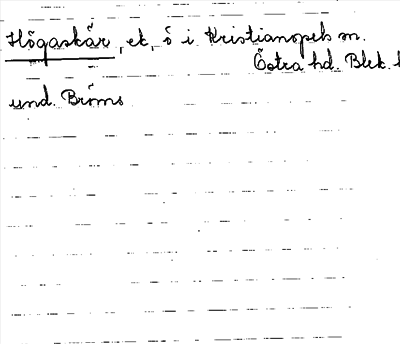 Högaskär, ek, ö i Kristianopels sn.
Östra hd. Blek. l
und. Bröms